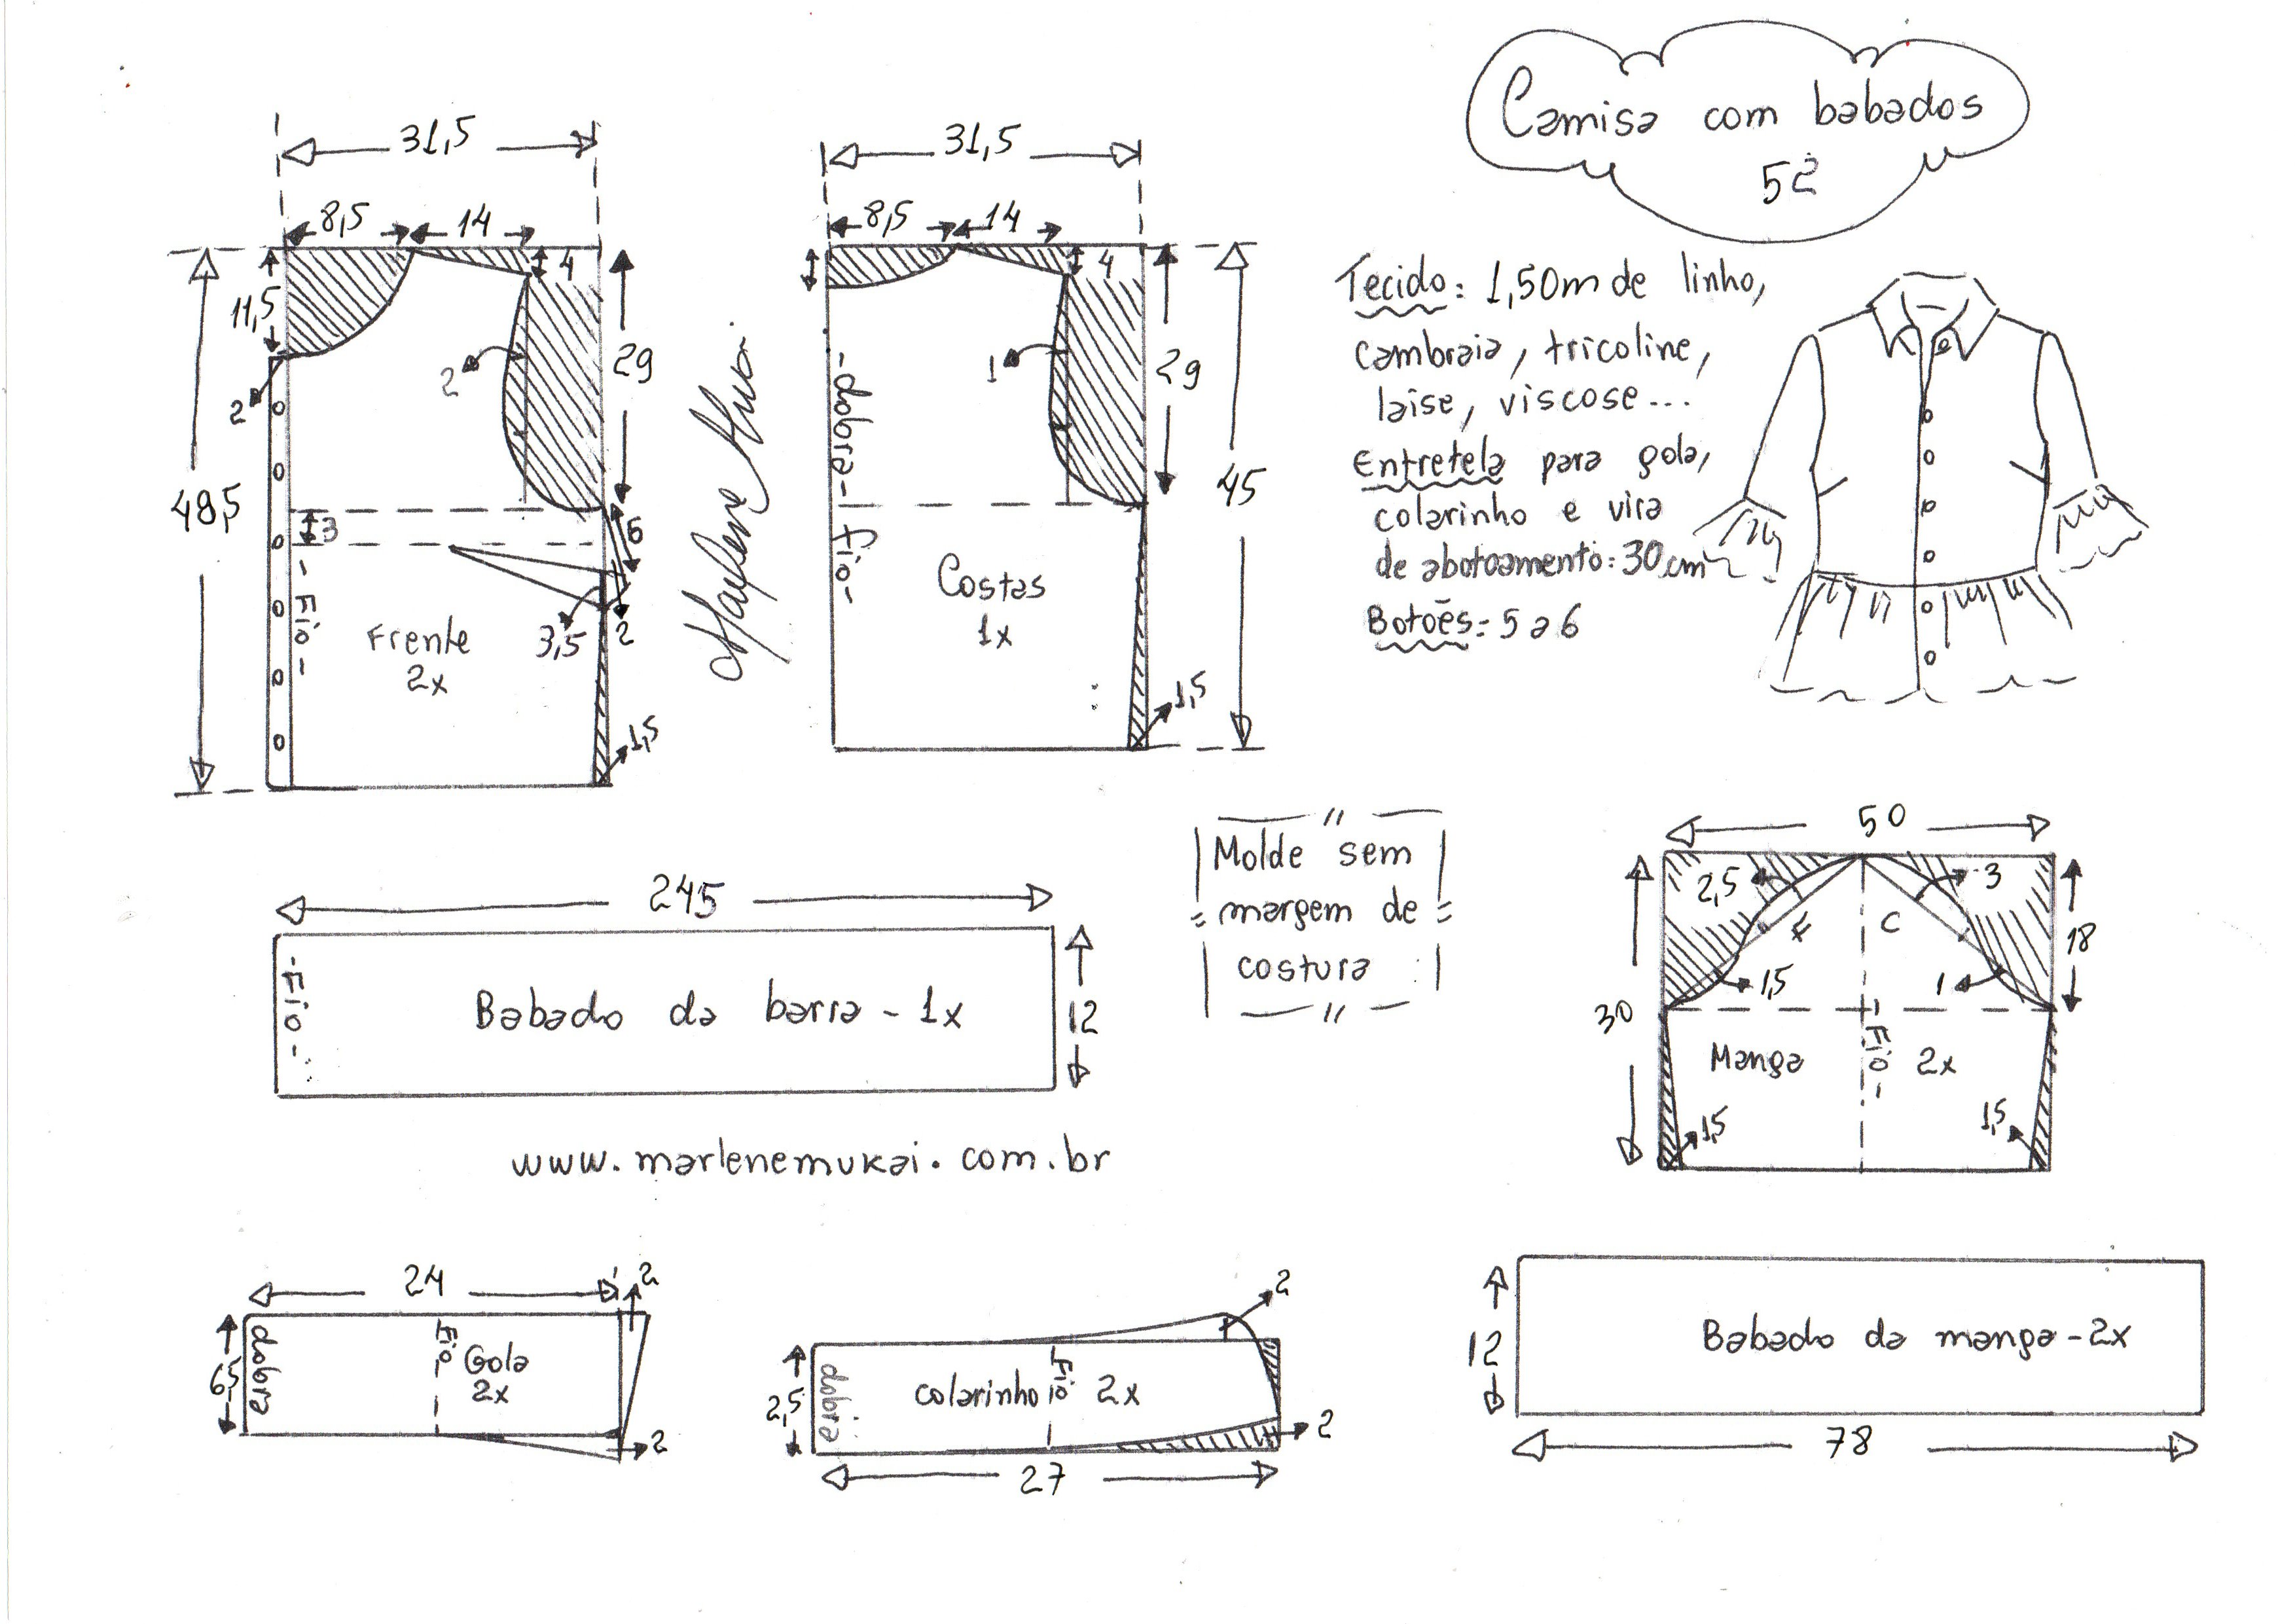 Camisa com babados
52
31,5
8,5
14
4
11,5
2
2
29
48,5
3
6
3,5
2
1,5
- Fio -
Frente
2x
31,5
8,5
14
4
1
29
45
- dobra - fio -
Costas
1x
1,5
Tecido: 1,50m de linho,
cambraia, tricoline,
laise, viscose...
Entretela para gola,
colarinho e vira
de abotoamento: 30 cm
Botões: 5 a 6
245
- Fio -
Babado da barra - 1x
12
Molde sem
margem de
costura
50
2,5
3
F
C
1,5
1
18
30
Manga
- Fio -
2x
1,5
1,5
www.marlenemukai.com.br
24
2
6,5
dobra
Fio
Gola
2x
2
2
2,5
dobra
colarinho
Fio
2x
2
27
12
Babado da manga - 2x
78